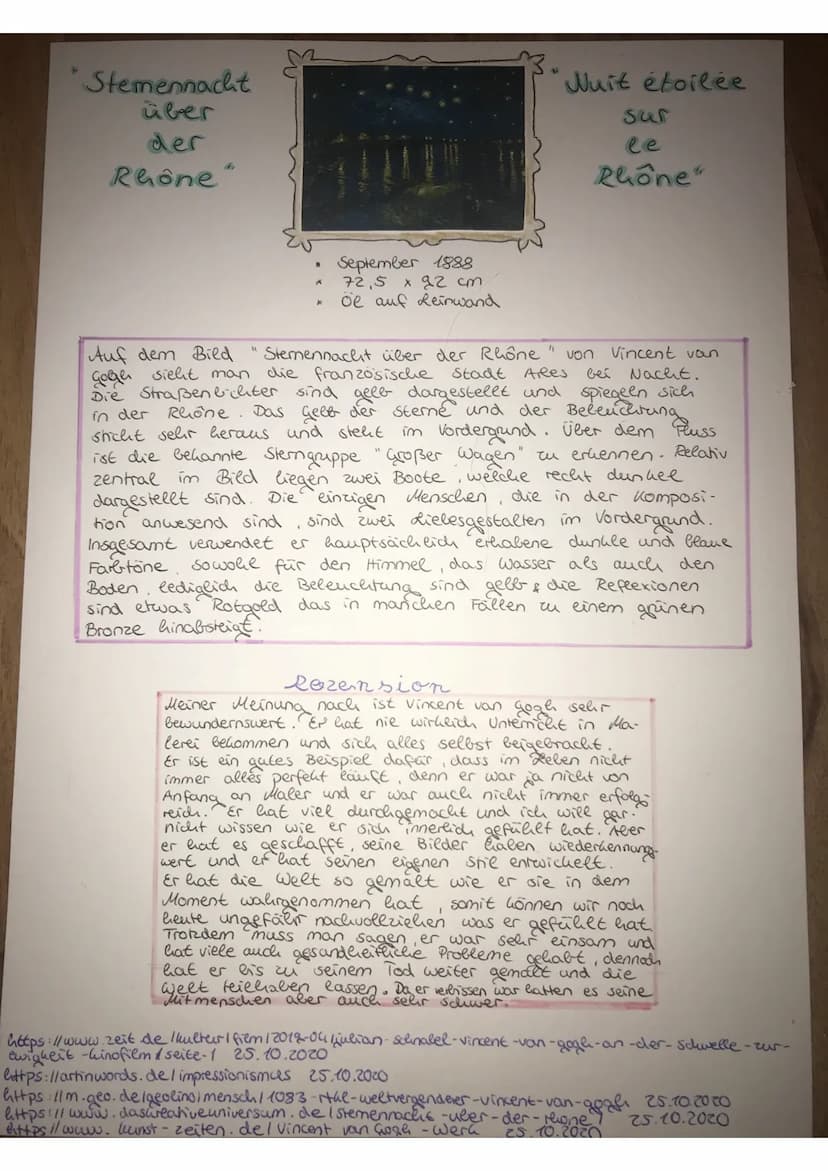 "Sternennacht
über
der
Rhône"
"Nuit étoilée
sur
le
Rhône"
• September 1888
• 72,5 x 92 cm
• Öl auf Leinwand
Auf dem Bild "Sternennacht über der Rhône" von Vincent van
Gogh sieht man die französische Stadt Arles bei Nacht.
Die Straßenlichter sind gelb dargestellt und spiegeln sich
in der Rhône. Das Gelb der Sterne und der Beleuchtung
sticht sehr heraus und steht im Vordergrund. Über dem Fluss
ist die bekannte Sterngruppe "Großer Wagen" zu erkennen. Relativ
zentral im Bild liegen zwei Boote, welche recht dunkel
dargestellt sind. Die einzigen Menschen, die in der Komposi-
tion anwesend sind, sind zwei Liebesgestalten im Vordergrund.
Insgesamt verwendet er hauptsächlich erhabene dunkle und blaue
Farbtöne, sowohl für den Himmel, das Wasser als auch den
Boden, lediglich die Beleuchtung sind gelb & die Reflexionen
sind etwas Rotgold das in manchen Fällen zu einem grünen
Bronze hinabsteigt.
Rezension
Meiner Meinung nach ist Vincent van Gogh sehr
bewundernswert. Er hat nie wirklich Unterricht in Ma-
lerei bekommen und sich alles selbst beigebracht.
Er ist ein gutes Beispiel dafür, dass im Leben nicht
immer alles perfekt läuft, denn er war ja nicht von
Anfang an Maler und er war auch nicht immer erfolg-
reich. Er hat viel durchgemacht und ich will gar
nicht wissen wie er sich innerlich gefühlt hat. Aber
er hat es geschafft, seine Bilder haben wiederkennung-
wert und er hat seinen eigenen Stil entwickelt.
Er hat die Welt so gemalt wie er sie in dem
Moment wahrgenommen hat, somit können wir noch
heute ungefähr nachvollziehen was er gefühlt hat.
Trotzdem muss man sagen, er war sehr einsam und
hat viele auch gesundheitliche Probleme gehabt, dennoch
hat er bis zu seinem Tod weiter gemalt und die
Welt teilhaben lassen. Da er verbissen war hatten es seine
Mitmenschen aber auch sehr schwer.
https://www.zeit.de/kultur/film/2019-04/julian-schnabel-vincent-van-gogh-an-der-schwelle-zur-
ewigkeit-kinofilm/seite-1 25.10.2020
https://artinwords.de/impressionismus 25.10.2020
https://m.geo.de/geolino/mensch/1083-rtkl-weltveraenderer-vincent-van-gogh 25.10.2020
https://www.daskreativeuniversum.de/sternennacht-uber-der-rhone/ 25.10.2020
https://www.kunst-zeiten.de/Vincent van Gogh-Werk 25.10.2020